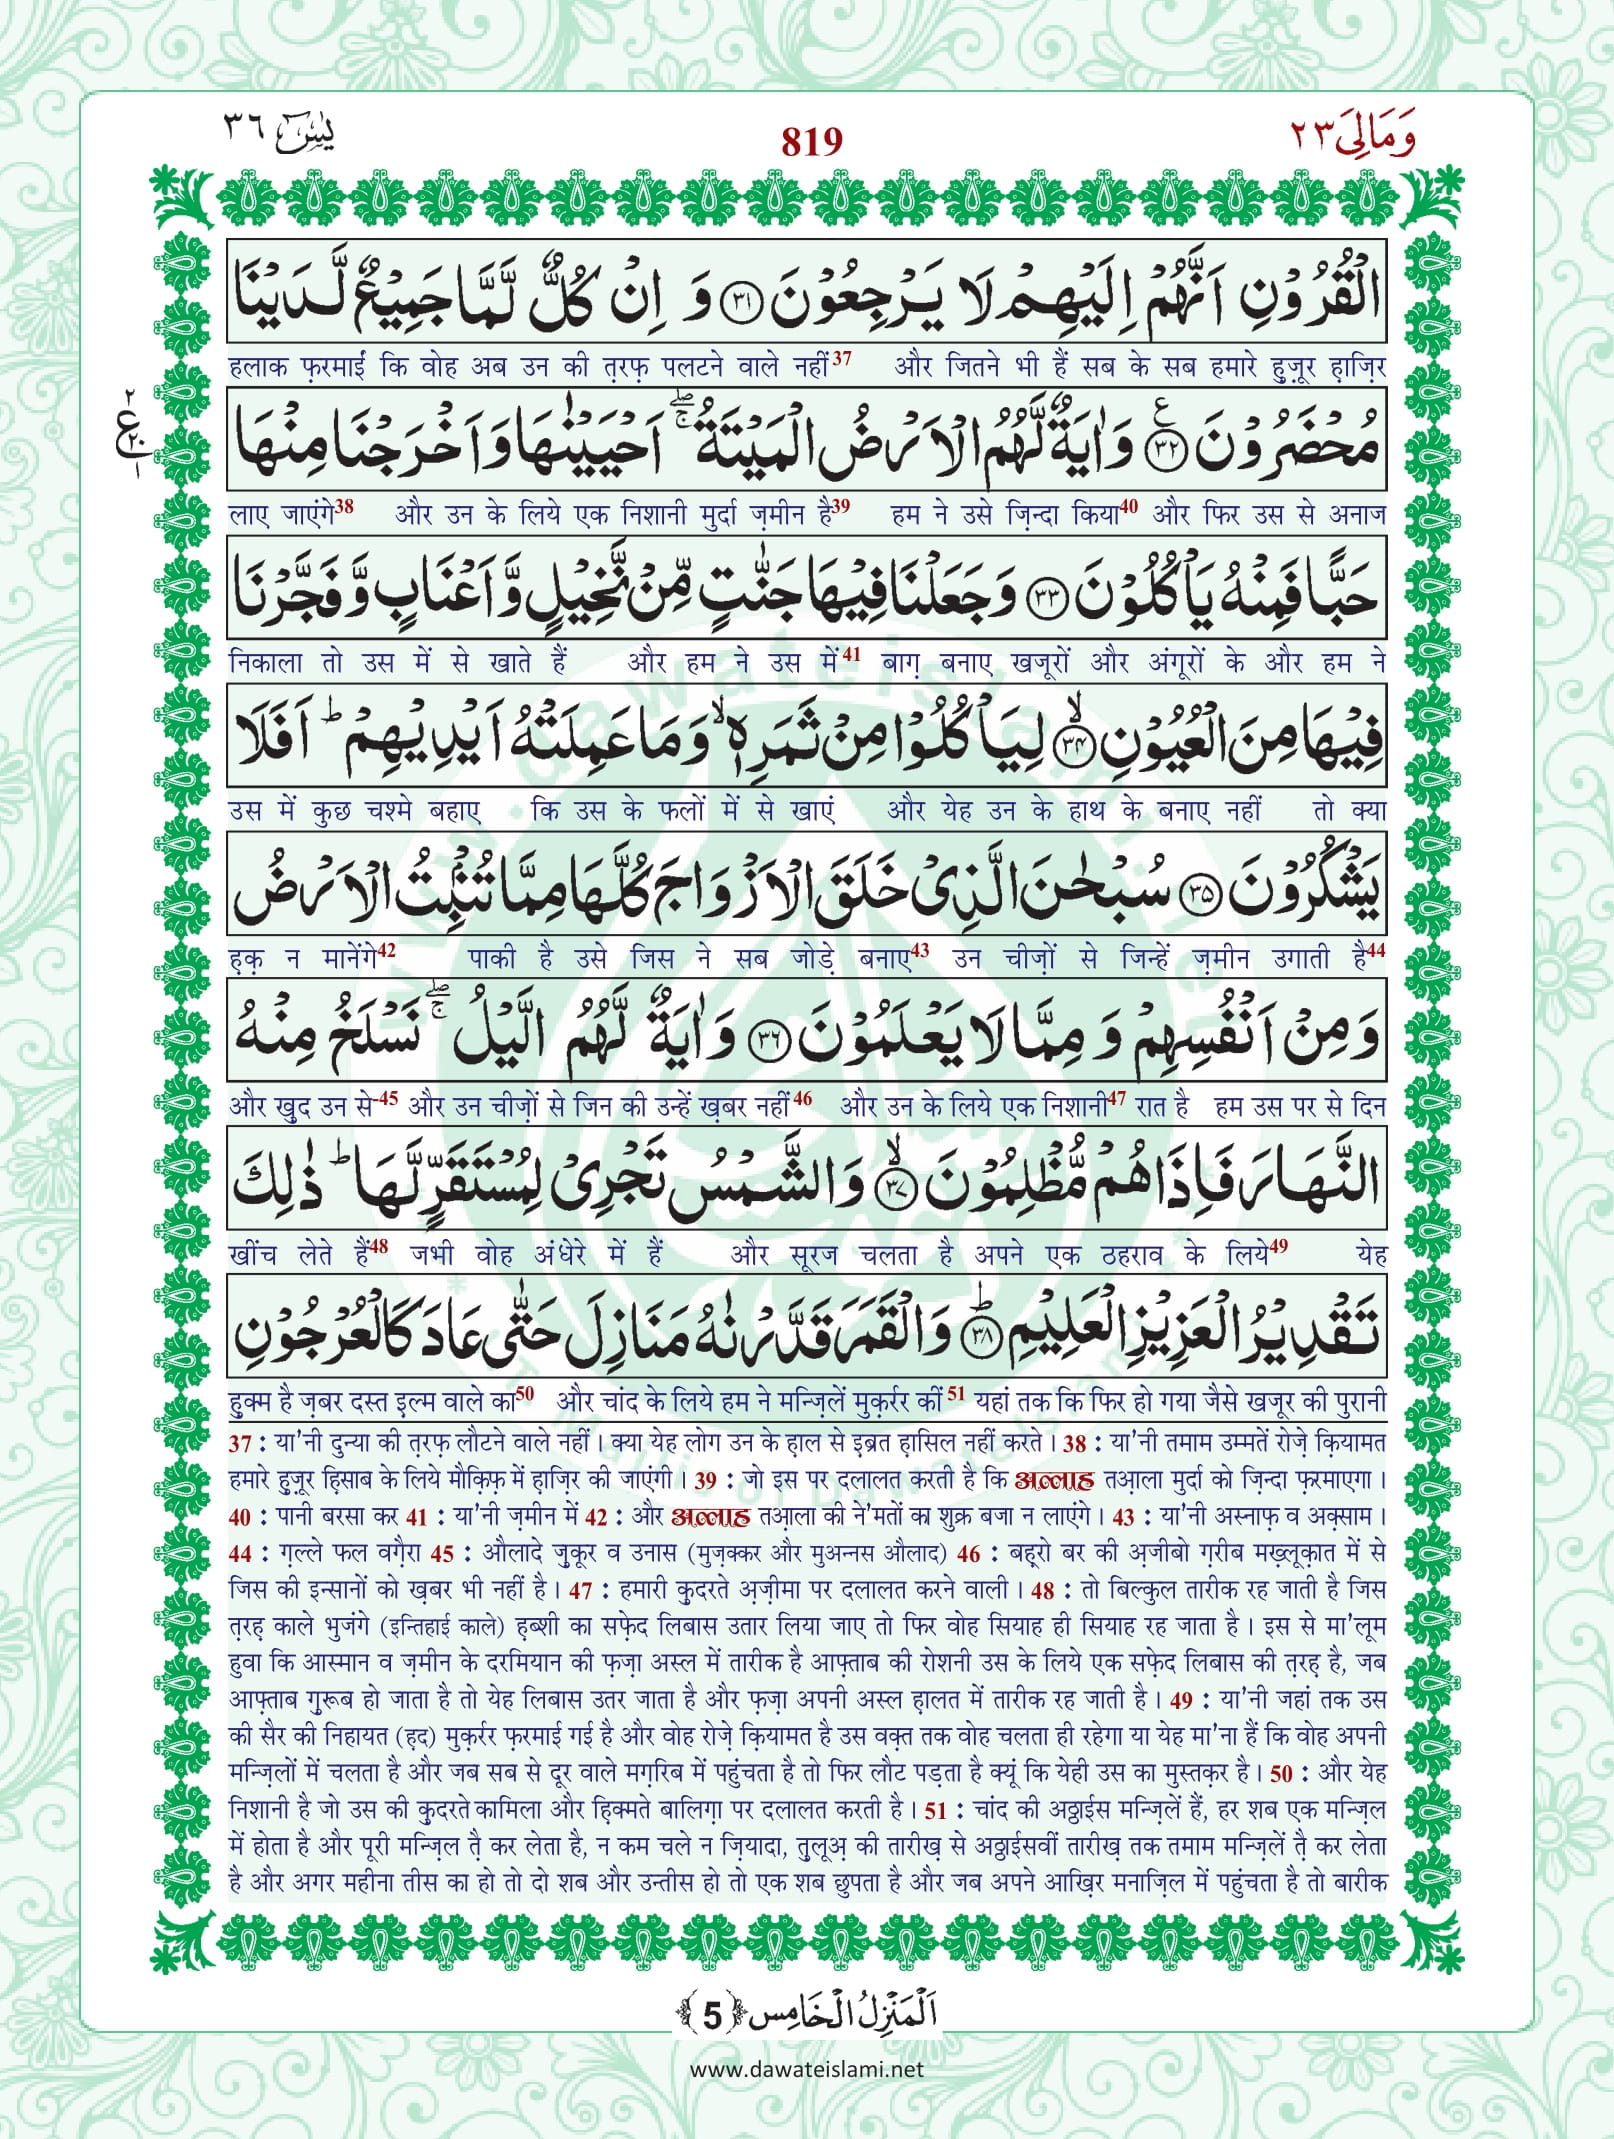 یٰسٓ ٣٦
819
وَمَالِیَ ٢٣
الْقُرُوْنِ اَنَّهُمْ اِلَیْهِمْ لَا یَرْجِعُوْنَ ﴿۳۱﴾ وَ اِنْ كُلٌّ لَّمَّا جَمِیْعٌ لَّدَیْنَا
हलाक फ़रमाईं कि वोह अब उन की त़रफ़ पलटने वाले नहीं37 और जितने भी हैं सब के सब हमारे हुज़ूर ह़ाज़िर
مُحْضَرُوْنَ ﴿۳۲﴾ وَ اٰیَةٌ لَّهُمُ الْاَرْضُ الْمَیْتَةُ ۖۚ اَحْیَیْنٰهَا وَ اَخْرَجْنَا مِنْهَا
लाए जाएंगे38 और उन के लिये एक निशानी मुर्दा ज़मीन है39 हम ने उसे ज़िन्दा किया40 और फिर उस से अनाज
حَبًّا فَمِنْهُ یَاْكُلُوْنَ ﴿۳۳﴾ وَ جَعَلْنَا فِیْهَا جَنّٰتٍ مِّنْ نَّخِیْلٍ وَّ اَعْنَابٍ وَّ فَجَّرْنَا
निकाला तो उस में से खाते हैं और हम ने उस में41 बाग़ बनाए खजूरों और अंगूरों के और हम ने
فِیْهَا مِنَ الْعُیُوْنِ ﴿۳۴﴾ لِیَاْكُلُوْا مِنْ ثَمَرِهٖ ۙ وَ مَا عَمِلَتْهُ اَیْدِیْهِمْ ؕ اَفَلَا
उस में कुछ चश्मे बहाए कि उस के फलों में से खाएं और येह उन के हाथ के बनाए नहीं तो क्या
یَشْكُرُوْنَ ﴿۳۵﴾ سُبْحٰنَ الَّذِیْ خَلَقَ الْاَزْوَاجَ كُلَّهَا مِمَّا تُنْۢبِتُ الْاَرْضُ
ह़क़ न मानेंगे42 पाकी है उसे जिस ने सब जोड़े बनाए43 उन चीज़ों से जिन्हें ज़मीन उगाती है44
وَ مِنْ اَنْفُسِهِمْ وَ مِمَّا لَا یَعْلَمُوْنَ ﴿۳۶﴾ وَ اٰیَةٌ لَّهُمُ الَّیْلُ ۖۚ نَسْلَخُ مِنْهُ
और ख़ुद उन से45 और उन चीज़ों से जिन की उन्हें ख़बर नहीं46 और उन के लिये एक निशानी47 रात है हम उस पर से दिन
النَّهَارَ فَاِذَا هُمْ مُّظْلِمُوْنَ ﴿۳۷﴾ وَ الشَّمْسُ تَجْرِیْ لِمُسْتَقَرٍّ لَّهَا ؕ ذٰلِكَ
खींच लेते हैं48 जभी वोह अंधेरे में हैं और सूरज चलता है अपने एक ठहराव के लिये49 येह
تَقْدِیْرُ الْعَزِیْزِ الْعَلِیْمِ ﴿۳۸﴾ وَ الْقَمَرَ قَدَّرْنٰهُ مَنَازِلَ حَتّٰى عَادَ كَالْعُرْجُوْنِ
हुक्म है ज़बर दस्त इ़ल्म वाले का50 और चांद के लिये हम ने मन्ज़िलें मुक़र्रर कीं51 यहां तक कि फिर हो गया जैसे खजूर की पुरानी
37 : या'नी दुन्या की त़रफ़ लौटने वाले नहीं। क्या येह लोग उन के ह़ाल से इ़ब्रत ह़ासिल नहीं करते। 38 : या'नी तमाम उम्मतें रोज़े क़ियामत
हमारे हुज़ूर हि़साब के लिये मौक़िफ़ में ह़ाज़िर की जाएंगी। 39 : जो इस पर दलालत करती है कि अल्लाह तआ़ला मुर्दा को ज़िन्दा फ़रमाएगा।
40 : पानी बरसा कर 41 : या'नी ज़मीन में 42 : और अल्लाह तआ़ला की ने'मतों का शुक्र बजा न लाएंगे। 43 : या'नी अस्नाफ़ व अक़्साम।
44 : ग़ल्ले फल वग़ैरा 45 : औलादे ज़ुकूर व उनास (मुज़क्कर और मुअन्नस औलाद) 46 : बह़्रो बर की अ़जीबो ग़रीब मख़्लूक़ात में से
जिस की इन्सानों को ख़बर भी नहीं है। 47 : हमारी क़ुदरते अ़ज़ीमा पर दलालत करने वाली। 48 : तो बिल्कुल तारीक रह जाती है जिस
त़रह़ काले भुजंगे (इन्तिहाई काले) ह़ब्शी का सफ़ेद लिबास उतार लिया जाए तो फिर वोह सियाह ही सियाह रह जाता है। इस से मा'लूम
हुवा कि आस्मान व ज़मीन के दरमियान की फ़ज़ा अस्ल में तारीक है आफ़्ताब की रोशनी उस के लिये एक सफ़ेद लिबास की त़रह़ है, जब
आफ़्ताब ग़ुरूब हो जाता है तो येह लिबास उतर जाता है और फ़ज़ा अपनी अस्ल ह़ालत में तारीक रह जाती है। 49 : या'नी जहां तक उस
की सैर की निहायत (ह़द) मुक़र्रर फ़रमाई गई है और वोह रोज़े क़ियामत है उस वक़्त तक वोह चलता ही रहेगा या येह मा'ना हैं कि वोह अपनी
मन्ज़िलों में चलता है और जब सब से दूर वाले मग़रिब में पहुंचता है तो फिर लौट पड़ता है क्यूं कि येही उस का मुस्तक़र है। 50 : और येह
निशानी है जो उस की क़ुदरते कामिला और हि़क्मते बालिग़ा पर दलालत करती है। 51 : चांद की अठ्ठाईस मन्ज़िलें हैं, हर शब एक मन्ज़िल
में होता है और पूरी मन्ज़िल त़ै कर लेता है, न कम चले न ज़ियादा, त़ुलूअ़ की तारीख़ से अठ्ठाईसवीं तारीख़ तक तमाम मन्ज़िलें त़ै कर लेता
है और अगर महीना तीस का हो तो दो शब और उन्तीस हो तो एक शब छुपता है और जब अपने आख़िर मनाज़िल में पहुंचता है तो बारीक
اَلْمَنْزِلُ الْخَامِس ﴿5﴾
www.dawateislami.net